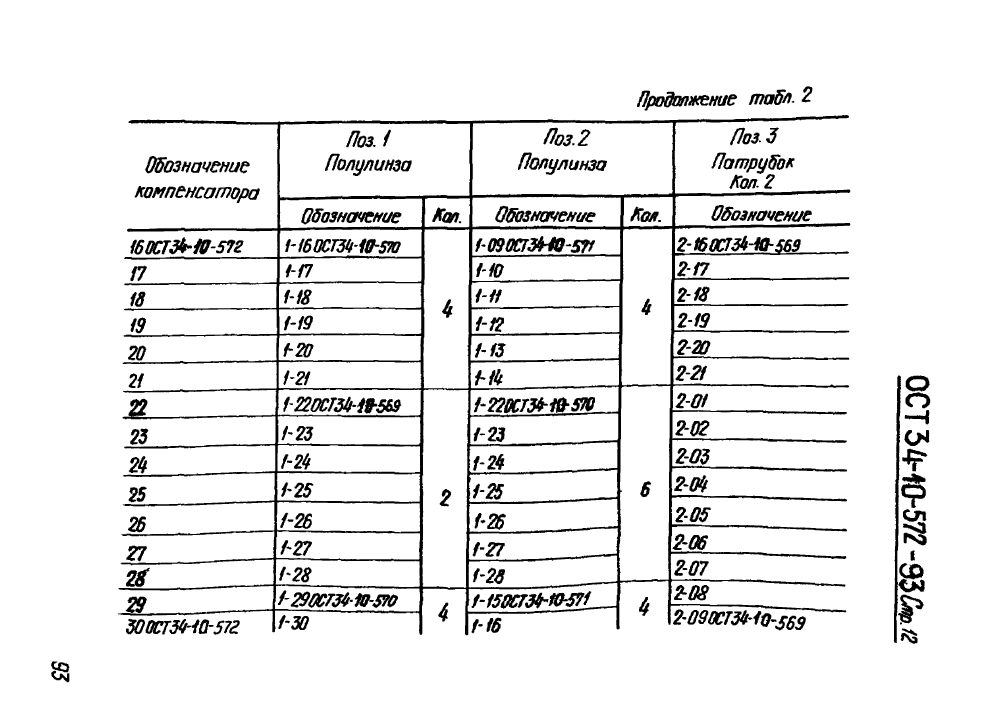 Продолжение табл. 2
Обозначение компенсатора | Поз. 1 Полулинза | Поз. 2 Полулинза | Поз. 3 Патрубок Кол. 2
Обозначение | Кол. | Обозначение | Кол. | Обозначение
16 ОСТ34-10-572 | 1-16 ОСТ34-10-570 | 4 | 1-09 ОСТ34-10-571 | 4 | 2-16 ОСТ34-10-569
17 | 1-17 | 1-10 | 2-17
18 | 1-18 | 1-11 | 2-18
19 | 1-19 | 1-12 | 2-19
20 | 1-20 | 1-13 | 2-20
21 | 1-21 | 1-14 | 2-21
22 | 1-22 ОСТ34-10-569 | 2 | 1-22 ОСТ34-10-570 | 6 | 2-01
23 | 1-23 | 1-23 | 2-02
24 | 1-24 | 1-24 | 2-03
25 | 1-25 | 1-25 | 2-04
26 | 1-26 | 1-26 | 2-05
27 | 1-27 | 1-27 | 2-06
28 | 1-28 | 1-28 | 2-07
29 | 1-29 ОСТ34-10-570 | 4 | 1-15 ОСТ34-10-571 | 4 | 2-08
30 ОСТ34-10-572 | 1-30 | 1-16 | 2-09 ОСТ34-10-569
ОСТ 34-10-572-93 Стр. 12
93